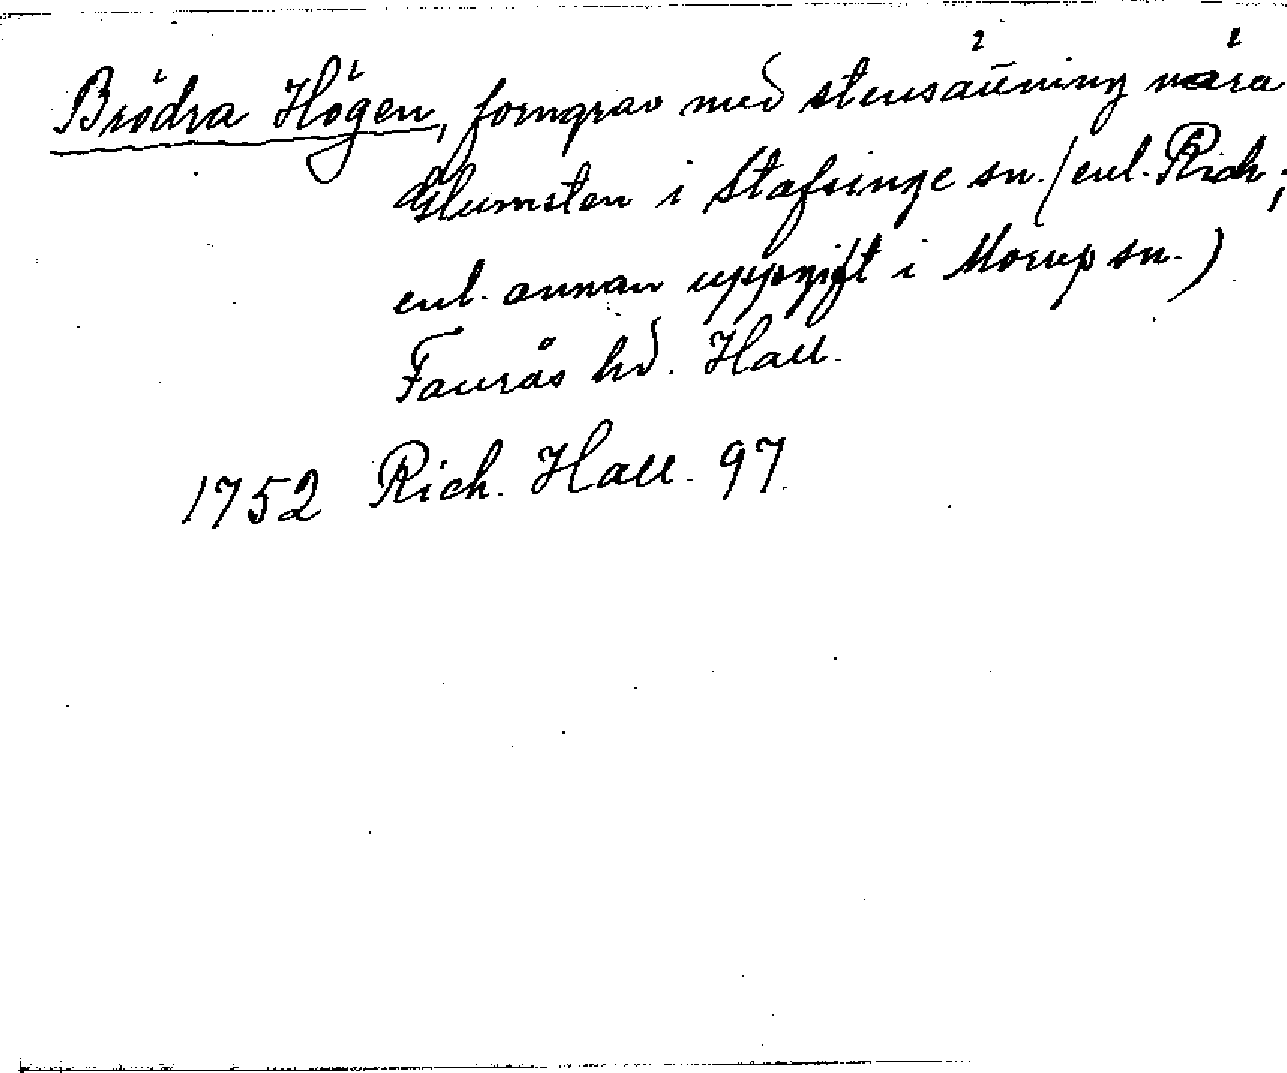 Brödra Högen, forngrav med stensättning nära
Glumsten i Stafsinge sn. (enl. Rich.;
enl. annan uppgift i Morup sn.)
Faurås hd. Hall.
1752 Rich. Hall. 97.